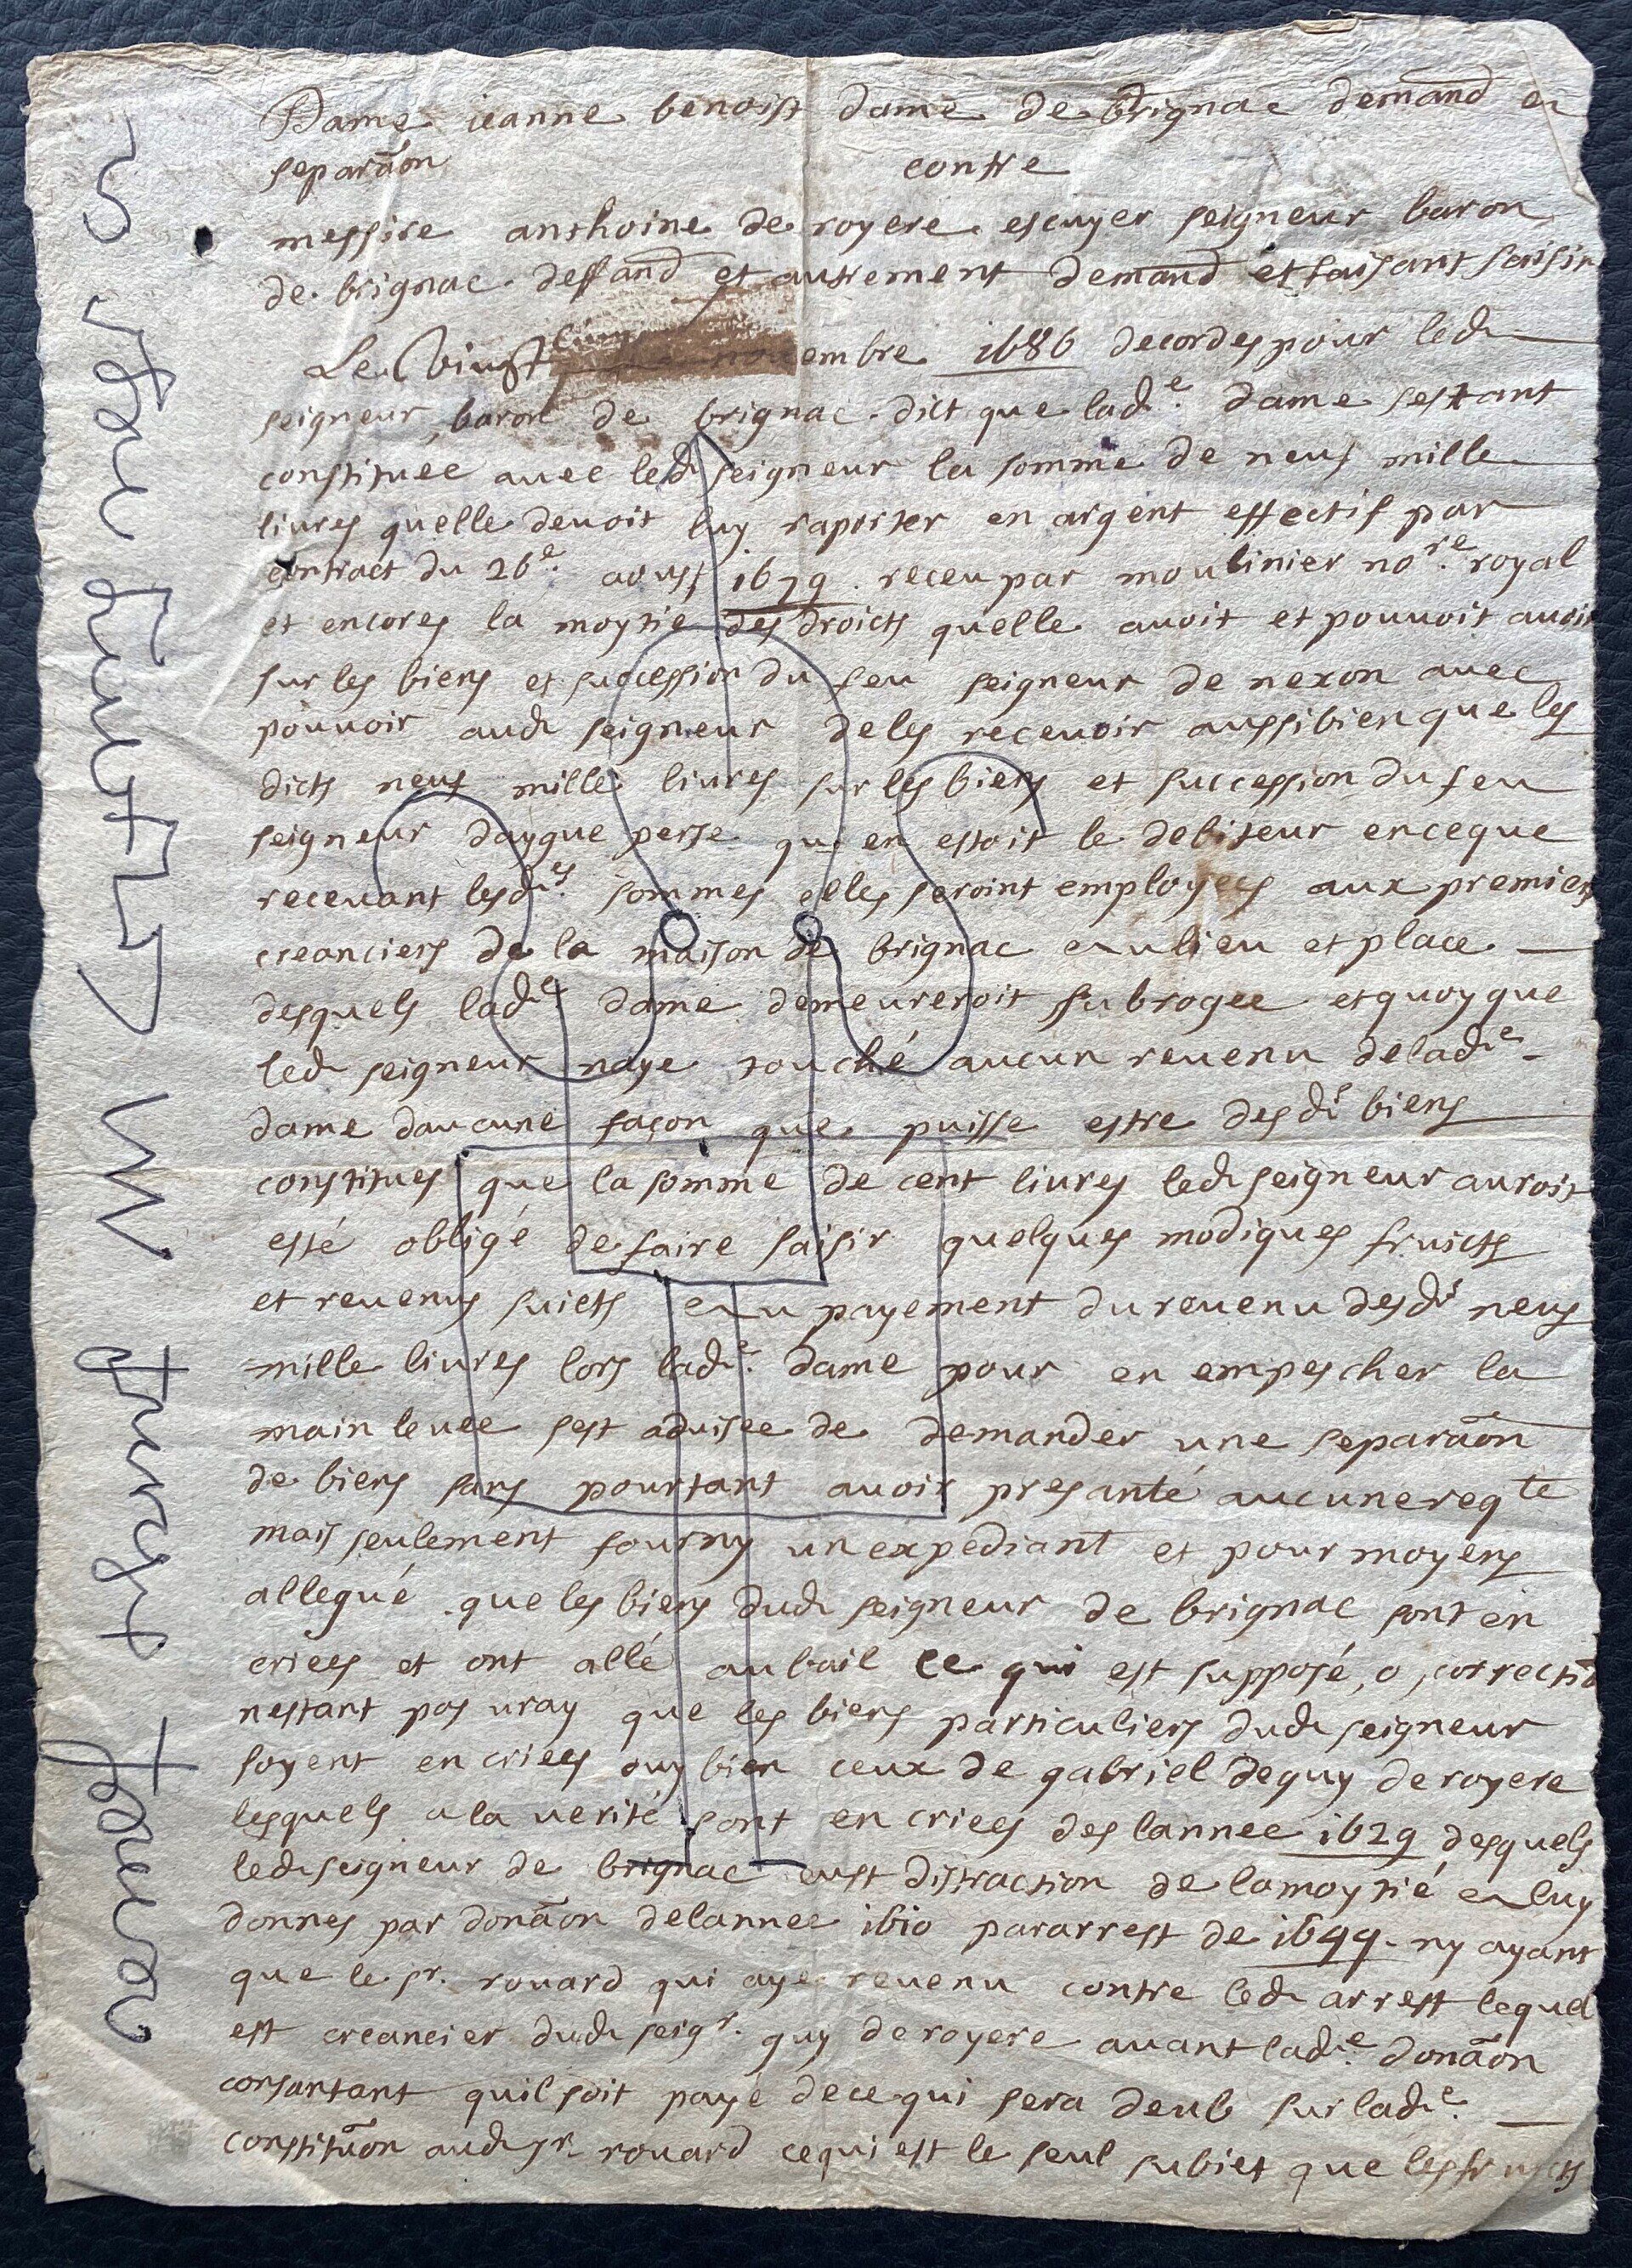 Dame ieanne benoist dame de brignac demand en
separãon contre
messire anthoine de royere escuyer seigneur baron
de brignac deffand et autrement demand et faisant saisir
Le Vingt embre 1686 decordes pour led
seigneur baron de brignac dict que lad.e dame sestant
constituee avec led seigneur la somme de neuf mille
livres quelle devoit luy raporter en argent effectif par
contract du 26e. aoust 1679 receu par moulinier nore. royal
et encores la moytie des droicts quelle avoit et pouvoit avoir
sur les biens et succession du feu seigneur de nexon avec
pouvoir aud seigneur de les recevoir aussi bien que les
dicts neuf mille livres sur les biens et succession du feu
seigneur daygue perse qui en estoit le debiteur en ce que
recevant lesd.es sommes elles seroint employees aux premiers
creanciers de la maison de brignac au lieu et place
desquels lad.e dame demeureroit subrogee et quoy que
led seigneur naye touché aucun revenu de lad.e
dame daucune façon que puisse estre desd.s biens
constitues que la somme de cent livres led seigneur auroit
esté obligé de faire saisir quelques modiques fruicts
et revenus suiets au payement du revenu desd.s neuf
mille livres lors lad.e dame pour en empescher la
main levee sest advisee de demander une separãon
de biens sans pourtant avoir presanté aucune reqte
mais seulement fourny un expediant et pour moyens
allegué que les biens dud seigneur de brignac sont en
criees et ont allé au bail ce qui est supposé, o, correction
nestant pas vray que les biens particuliers dud seigneur
soyent en criees ouy bien ceux de gabriel de guy de royere
lesquels a la verité sont en criees des lannee 1629 desquels
led seigneur de brignac eust distraction de la moytié a luy
donnes par donãon de lannee 1610 par arrest de 1644 ny ayant
que le sr. rouard qui aye revenu contre led arrest lequel
est creancier dud seigr. guy de royere avant lad.e donãon
consantant quil soit payé de ce qui sera deub sur lad.e
constitũon aud sr rouard ce qui est le seul subiet que les fruicts